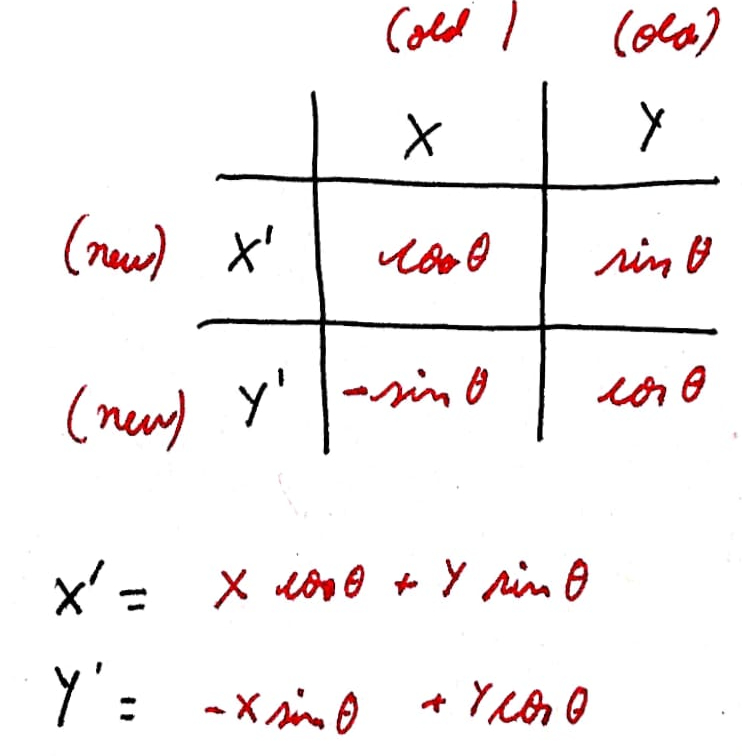 (old) (old)
X Y
(new) X' cos θ sin θ
(new) Y' -sin θ cos θ
X' = X cos θ + Y sin θ
Y' = -X sin θ + Y cos θ